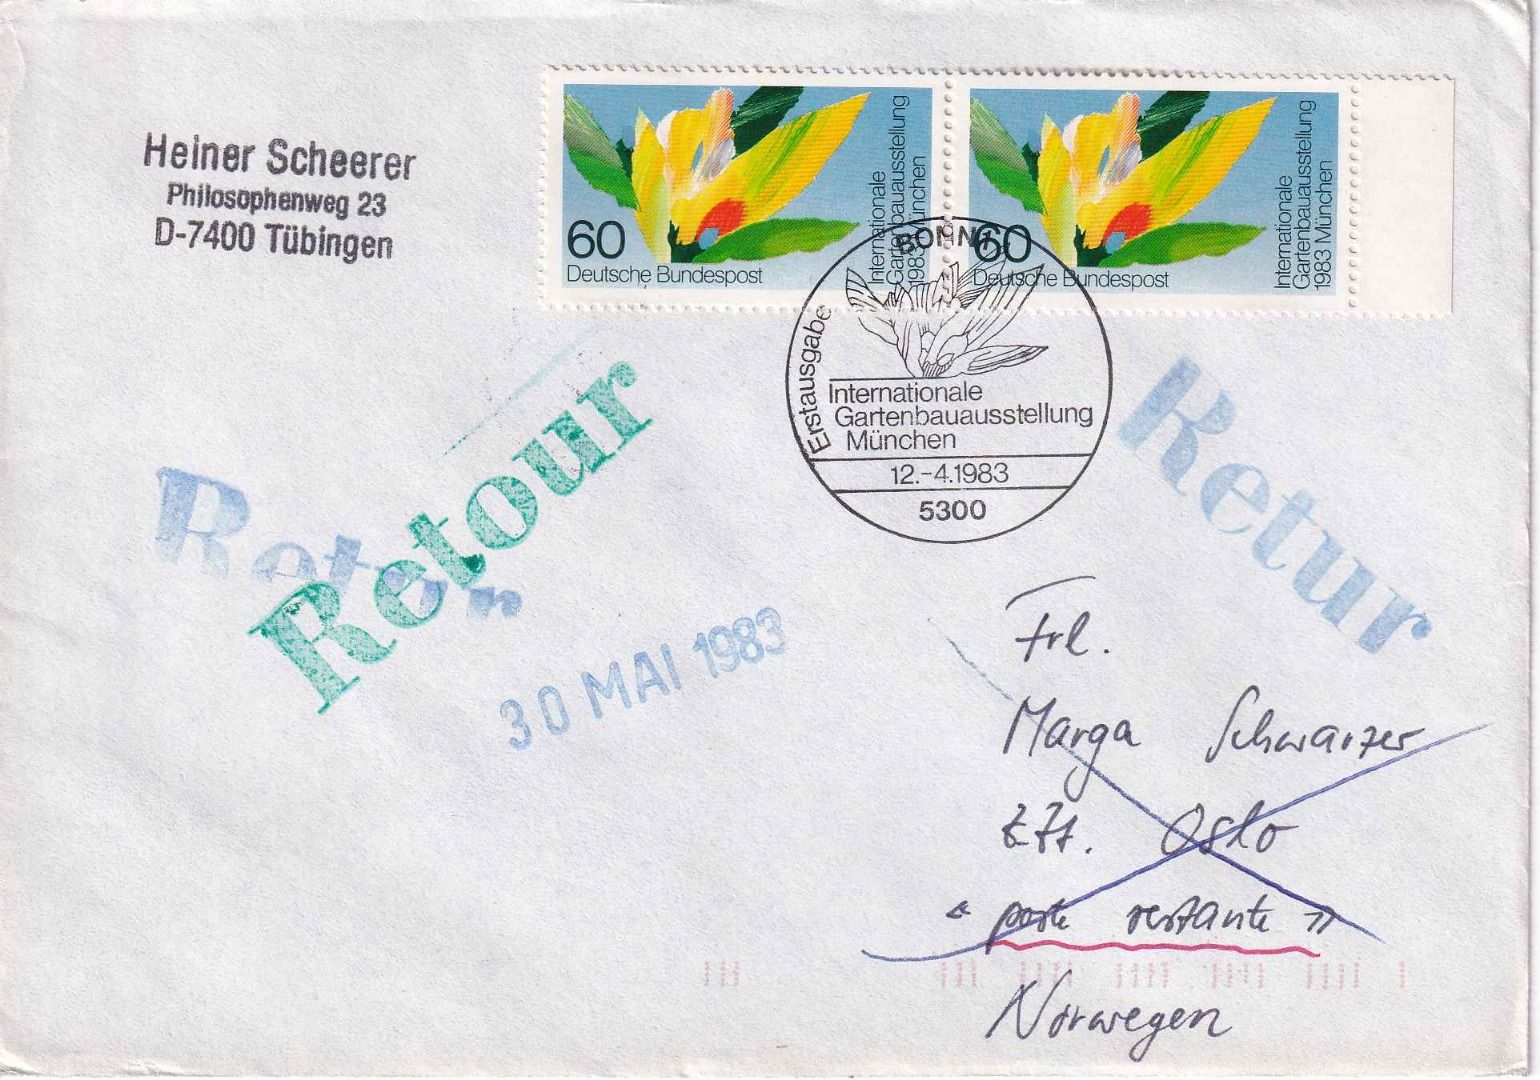 Heiner Scheerer
Philosophenweg 23
D-7400 Tübingen
60
Deutsche Bundespost
Internationale
Gartenbauausstellung
1983 München
60
Deutsche Bundespost
Internationale
Gartenbauausstellung
1983 München
BONN 1
Erstausgabe
Internationale
Gartenbauausstellung
München
12.-4.1983
5300
Retour
Retur
Retur
30 MAI 1983
Frl.
Marga Schwarzer
Oslo
« poste restante »
Norwegen